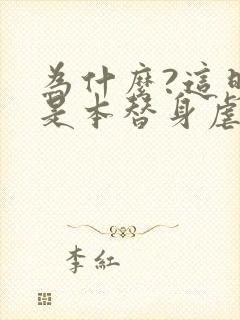 為什麼?這
是本替身虐
李紅